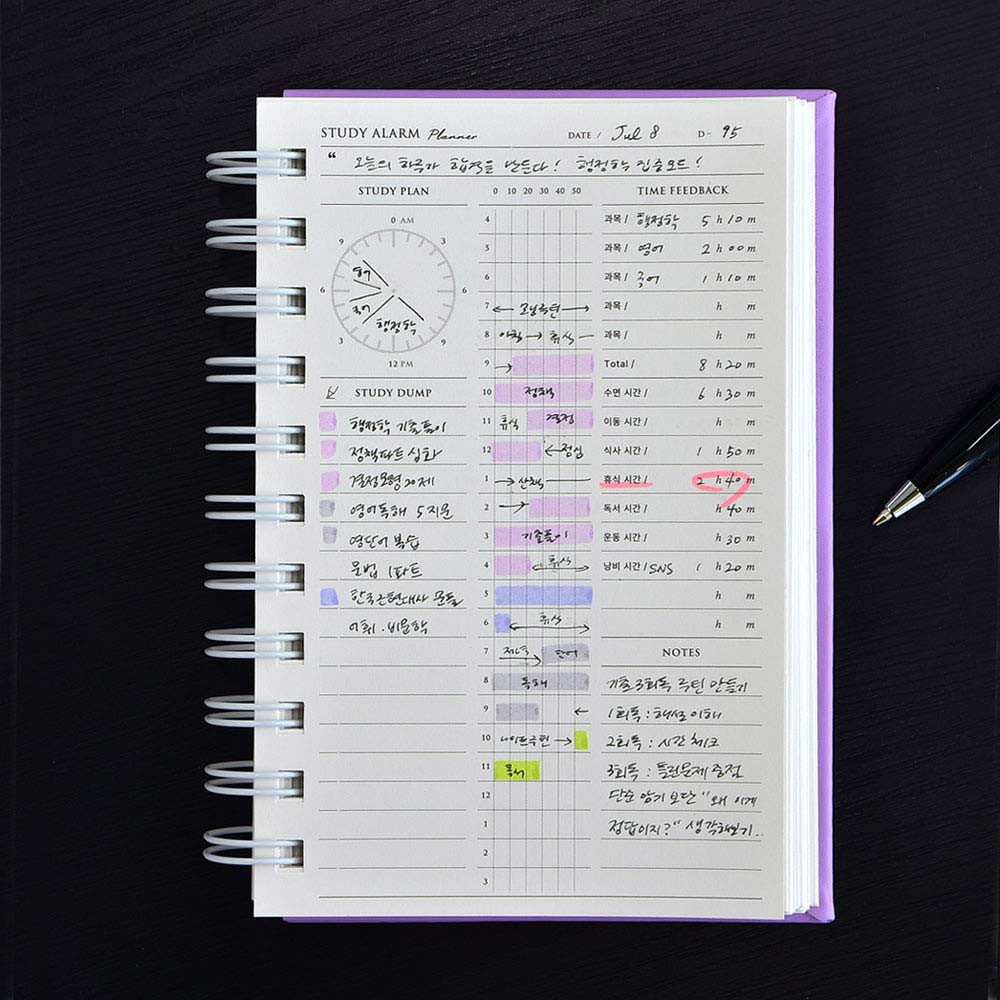 STUDY ALARM Planner DATE / Jul 8 D- 95
“ 오늘의 하루가 합격을 만든다! 행정학 집중모드!
STUDY PLAN
0 AM
9 3
6 6
3 9
12 PM
영어
국어
행정학
STUDY DUMP
행정학 기출풀이
정책파트 심화
결정모형 20제
영어독해 5지문
영단어 복습
문법 1파트
한국근현대사
어휘·비문학
0 10 20 30 40 50
4
5
6
7 ← 모닝루틴 →
8 아침 → 휴식
9 →
10 정책
11 휴식 결정
12 ← 점심
1 → 산책
2 →
3 기출풀이
4 휴식
5
6 휴식
7 저녁 단어
8 독해
9 ←
10 나이트루틴 →
11 독서
12
1
2
3
TIME FEEDBACK
과목 / 행정학 5 h 10 m
과목 / 영어 2 h 00 m
과목 / 국어 1 h 10 m
과목 / h m
과목 / h m
Total / 8 h 20 m
수면 시간 / 6 h 30 m
이동 시간 / h m
식사 시간 / 1 h 50 m
휴식 시간 / 2 h 40 m
독서 시간 / h 40 m
운동 시간 / h 30 m
낭비 시간 / SNS 1 h 20 m
h m
h m
NOTES
기출 3회독 루틴 만들기
1회독 : 해설 이해
2회독 : 시간 체크
3회독 : 틀린문제 중점
단순 암기 보단 “왜 이게
정답이지?“ 생각해보기..